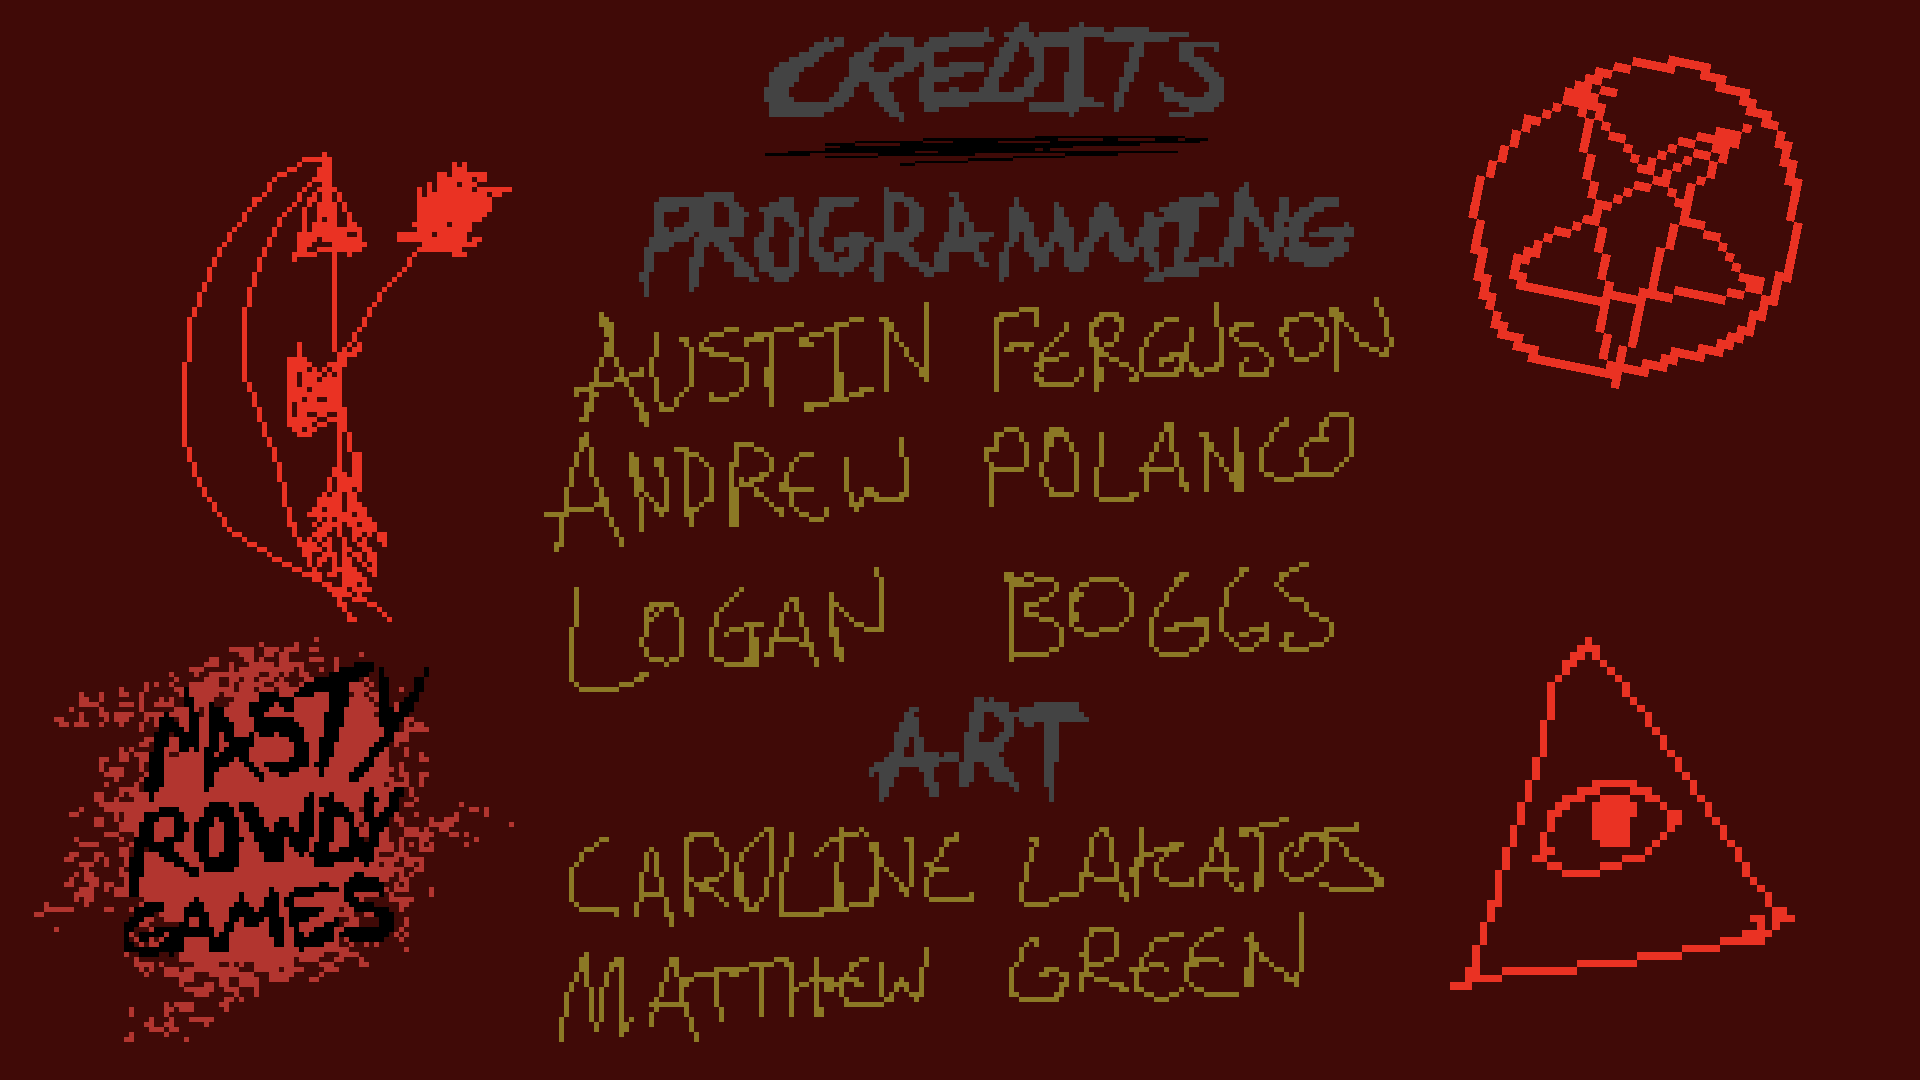 CREDITS
PROGRAMMING
AUSTIN FERGUSON
ANDREW POLANCO
LOGAN BOGGS
ART
CAROLINE LAKATOS
MATTHEW GREEN
NASTY
ROWDY
GAMES